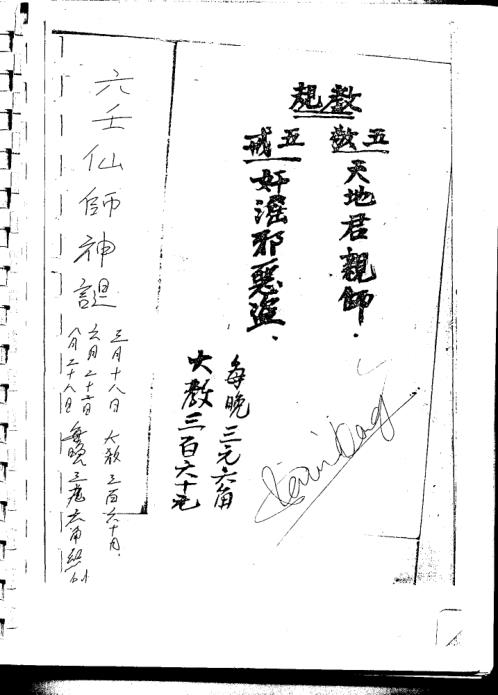 教規
五敬
天地君親師.
五戒
奸滛邪惡盜.
每晚三元六角
大教三百六十元
六壬仙師神誕
三月十八日 大教三百六十元.
六月二十六日
八月二十八日 每晚三元六角